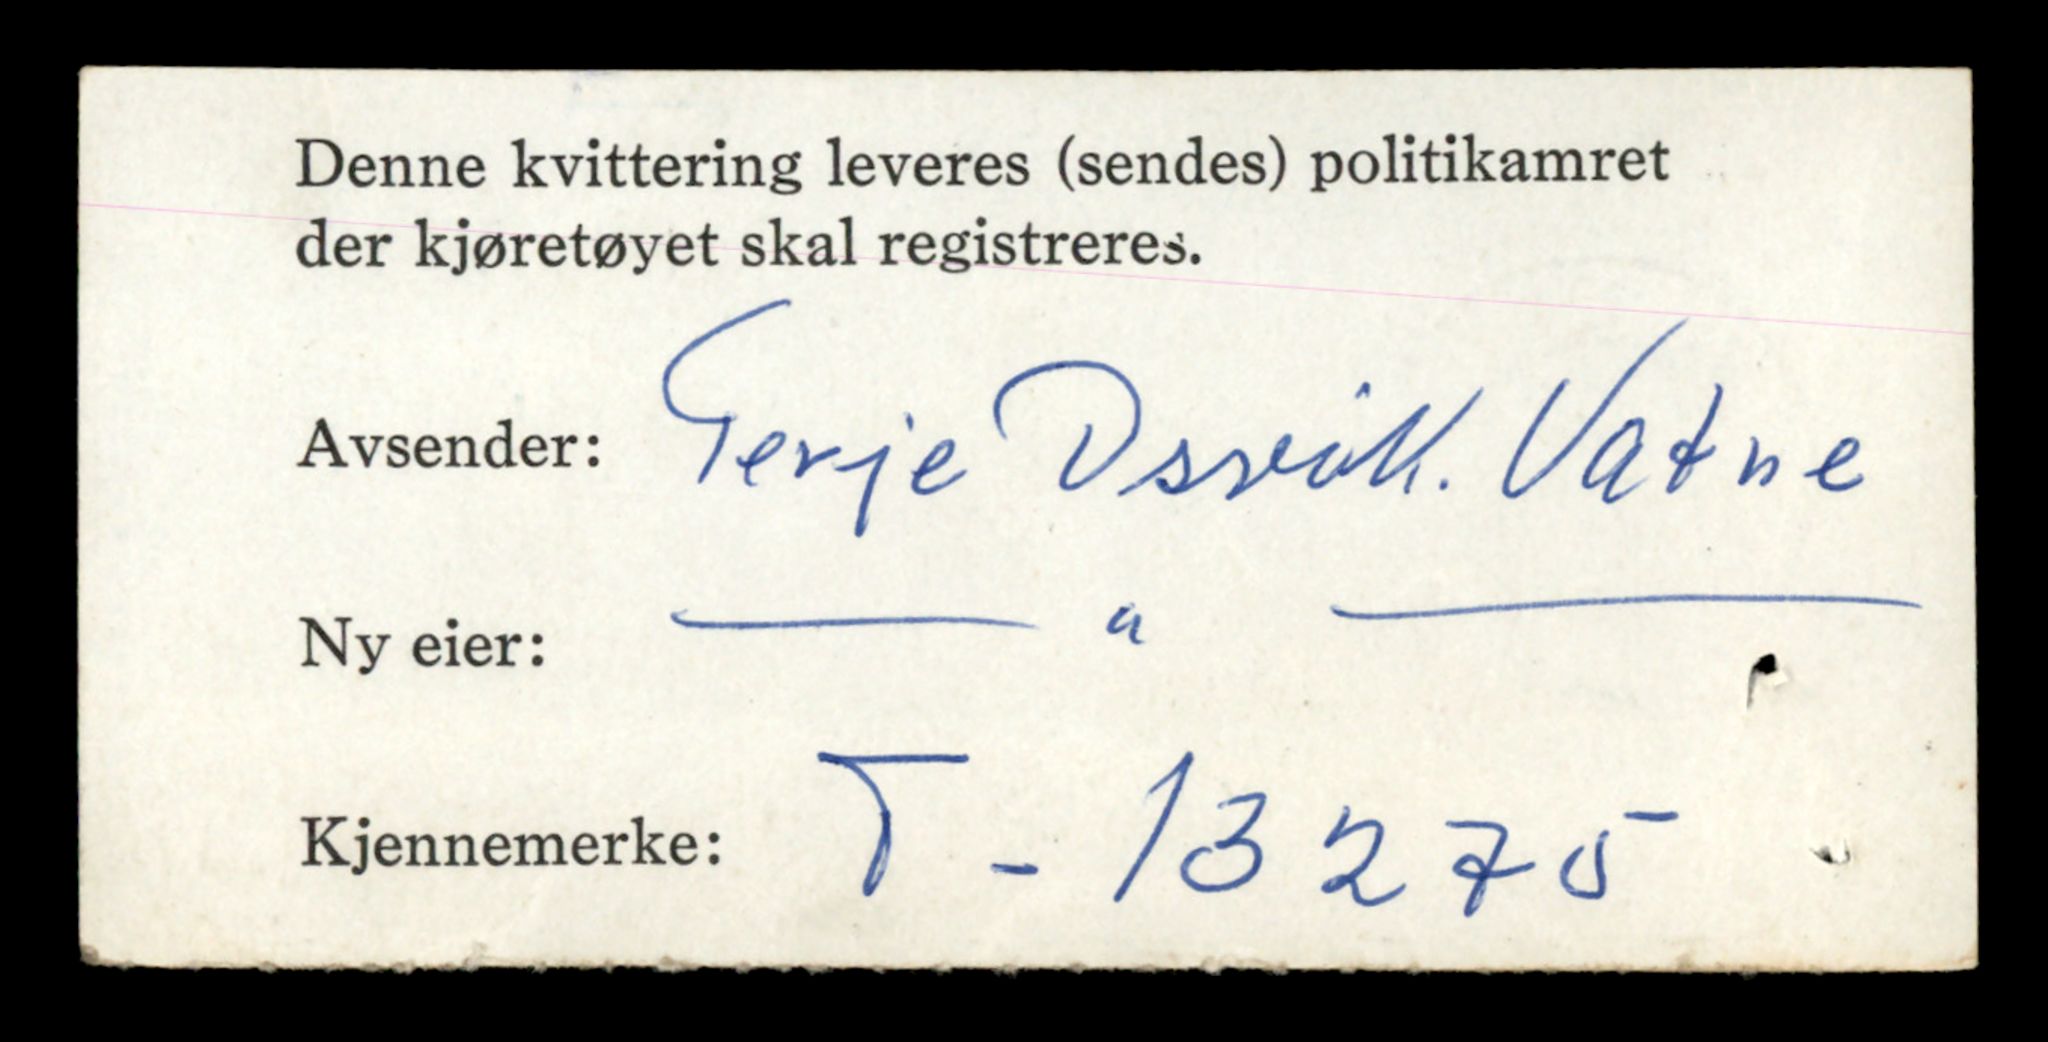 Denne kvittering leveres (sendes) politikamret
der kjøretøyet skal registreres.
Avsender: Terje Osvik. Vatne
Ny eier: — " —
Kjennemerke: T - 13275